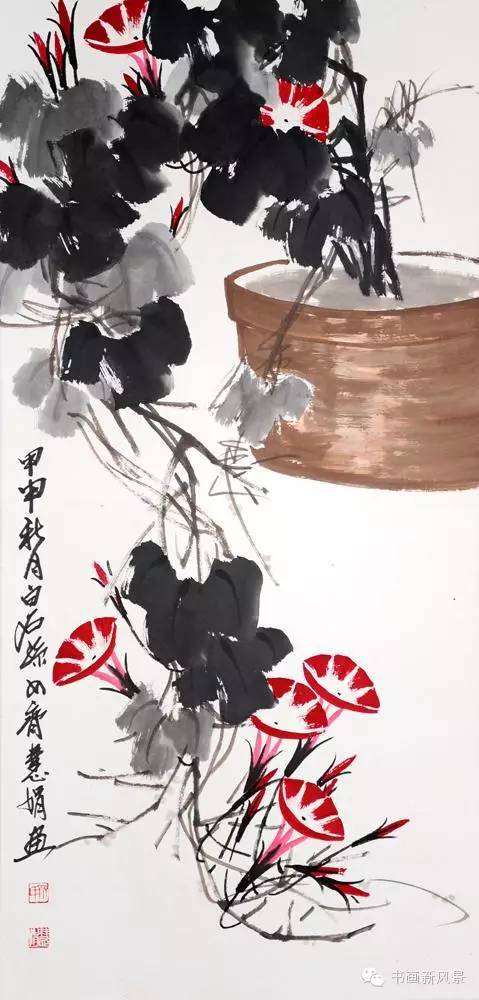 甲申秋月白石孙女齐慧娟画
书画新风景